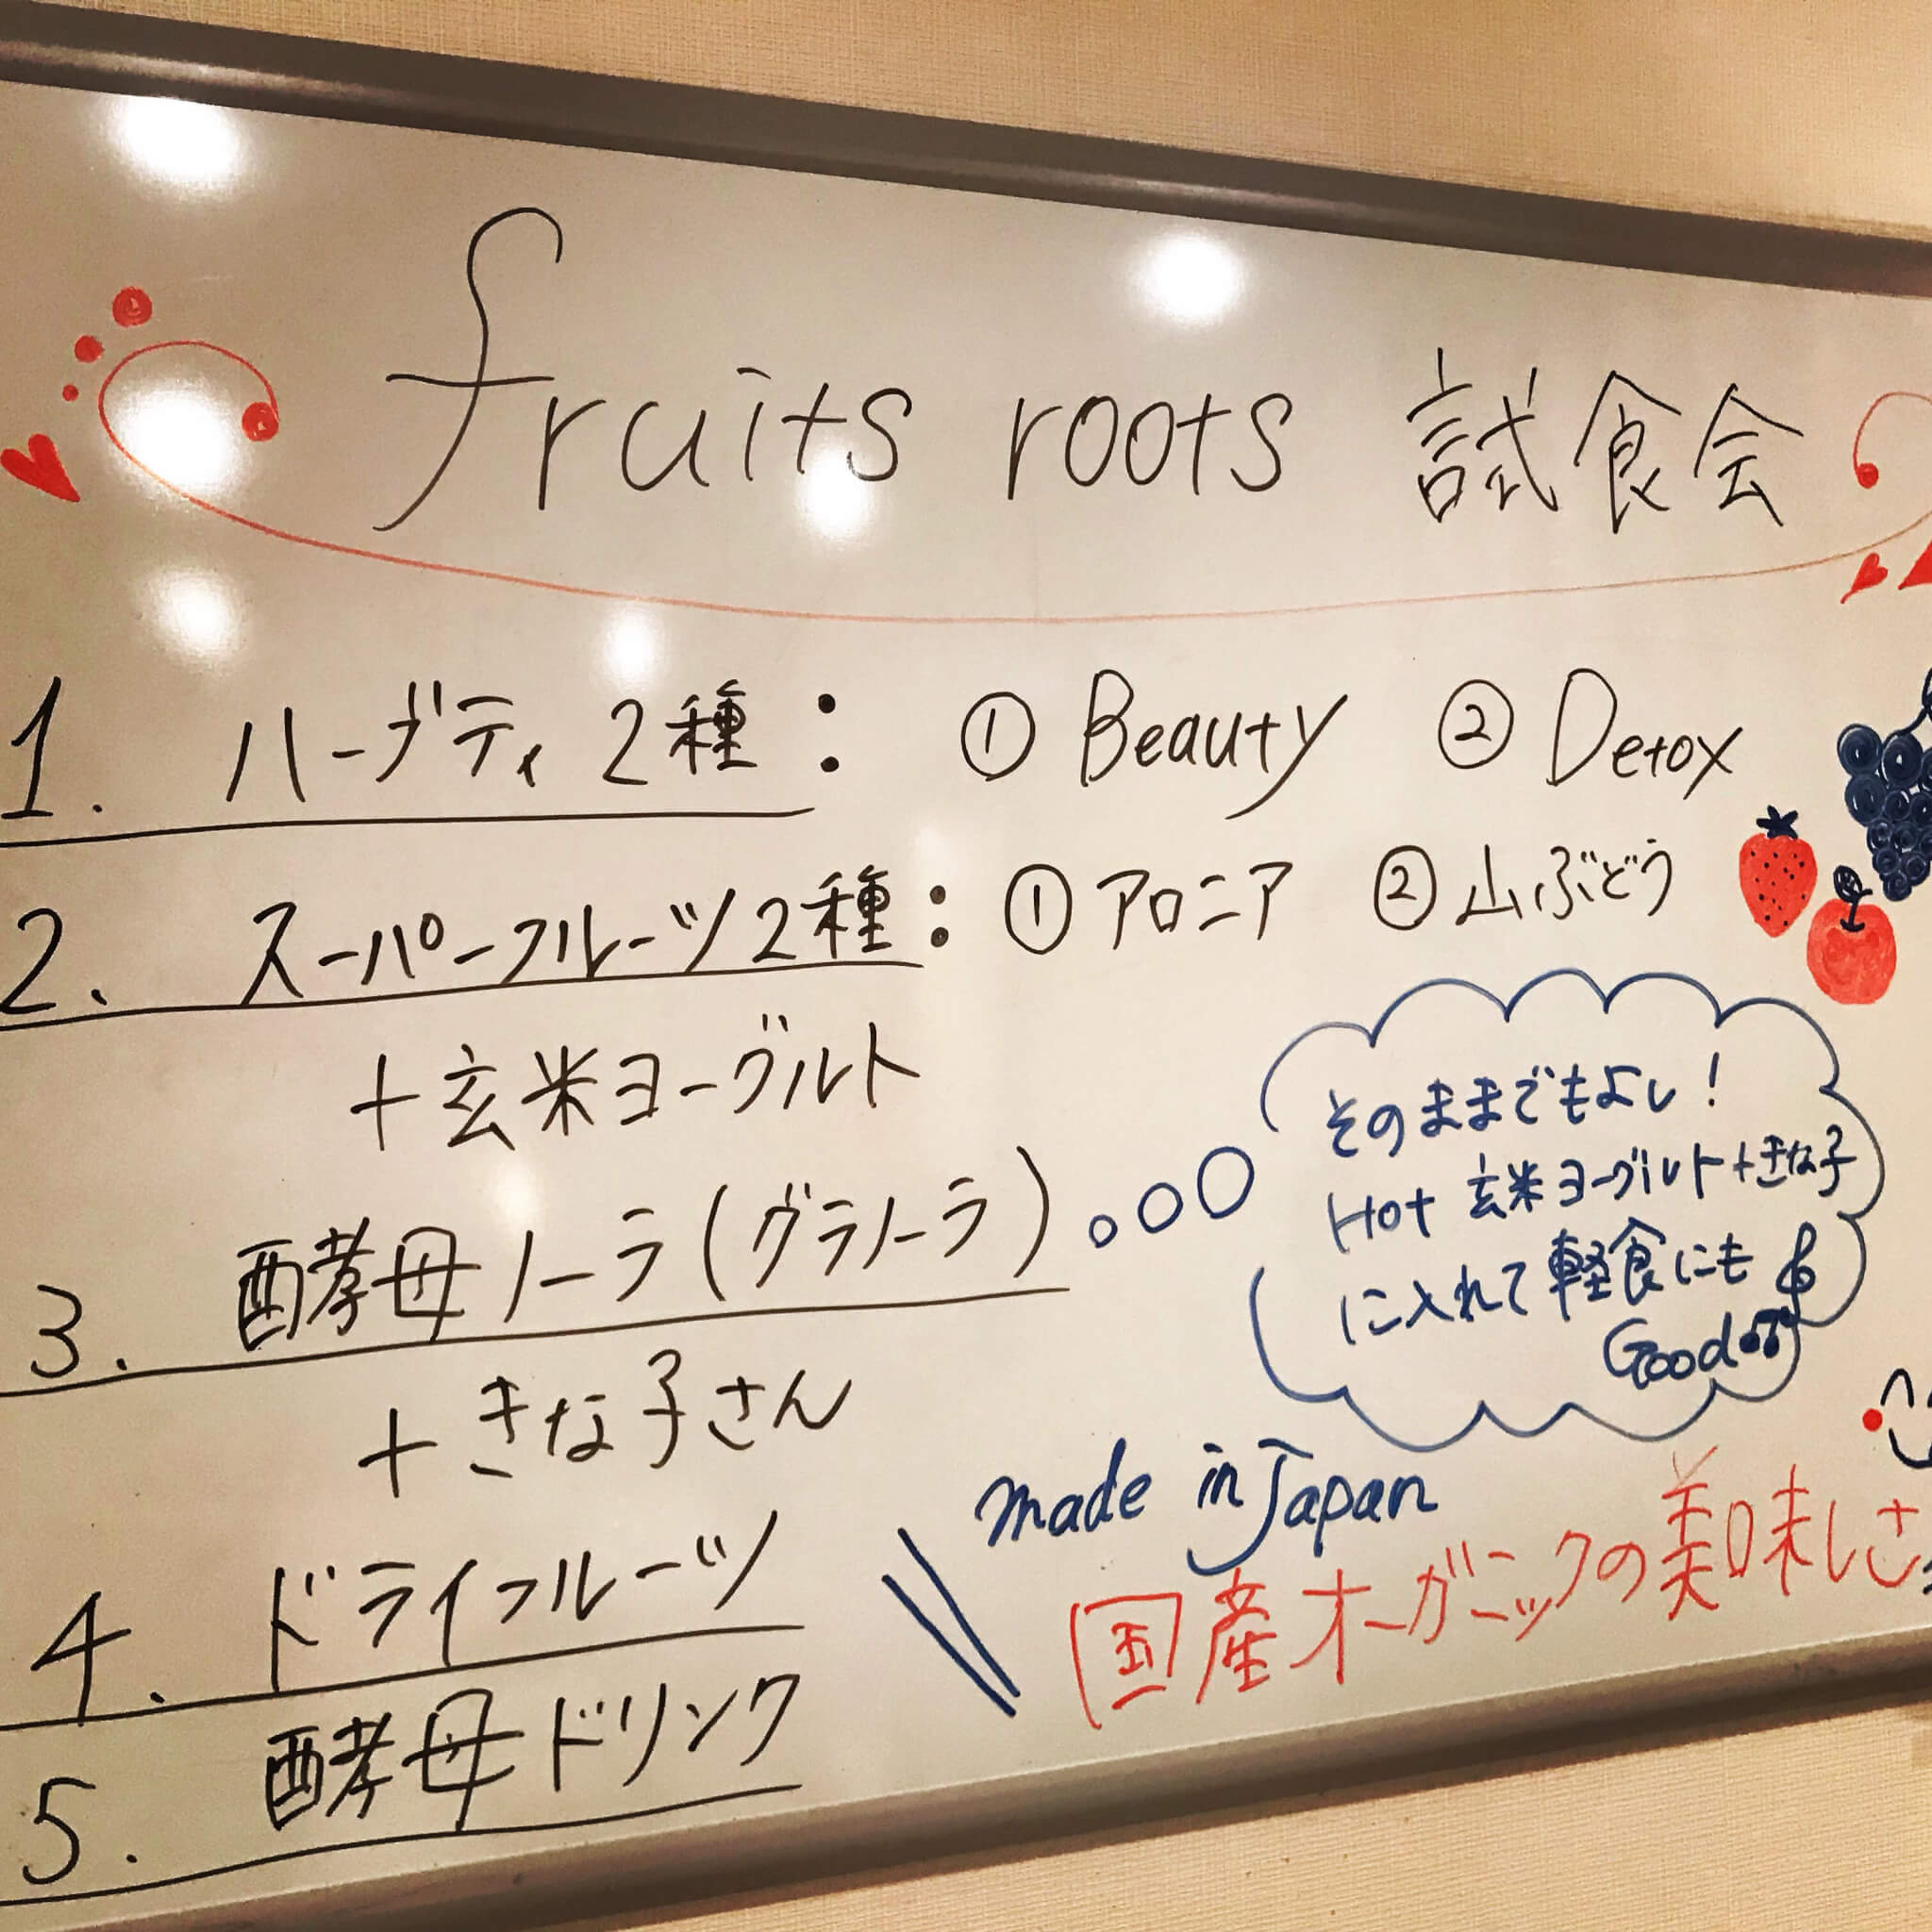 fruits roots 試食会
1. ハーブティ 2種: ① Beauty ② Detox
2. スーパーフルーツ2種: ① アロニア ② 山ぶどう
+ 玄米ヨーグルト
3. 酵母ノーラ(グラノーラ)
+ きな子さん
そのままでもよし!
Hot 玄米ヨーグルト+きな子
に入れて軽食にも
Good♫
4. ドライフルーツ
5. 酵母ドリンク
made in Japan
国産オーガニックの美味しさ